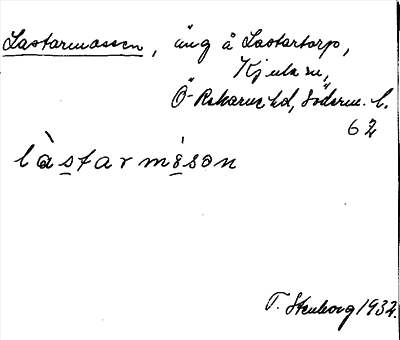 Lastarmossen, äng å Lastartorp,
Kjula sn,
Ö-Rekarne hd, Söderm. l.
62
làstarmòsən
T. Stenborg 1932.